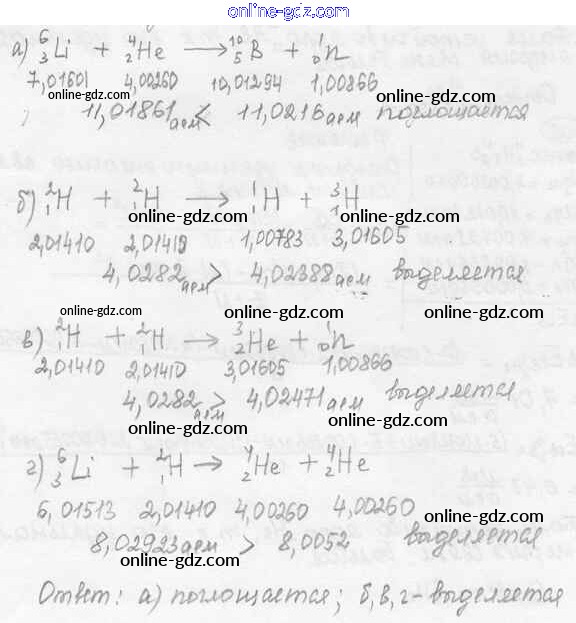 online-gdz.com
а) ⁶₃Li + ⁴₂He → ¹⁰₅B + ¹₀n
7,01601 4,00260 10,01294 1,00866
online-gdz.com online-gdz.com
11,01861 аем < 11,0216 аем поглощается
online-gdz.com
б) ²₁H + ²₁H → ¹₁H + ³₁H
online-gdz.com online-gdz.com
2,01410 2,01410 1,00783 3,01605
4,0282 аем > 4,02388 аем выделяется
online-gdz.com online-gdz.com
online-gdz.com
в) ²₁H + ²₁H → ³₂He + ¹₀n
online-gdz.com
2,01410 2,01410 3,01605 1,00866
4,0282 аем > 4,02471 аем выделяется
online-gdz.com online-gdz.com
г) ⁶₃Li + ²₁H → ⁴₂He + ⁴₂He
online-gdz.com
6,01513 2,01410 4,00260 4,00260
online-gdz.com
8,02923 аем > 8,0052 выделяется
online-gdz.com online-gdz.com
Ответ: а) поглощается; б, в, г - выделяется
online-gdz.com